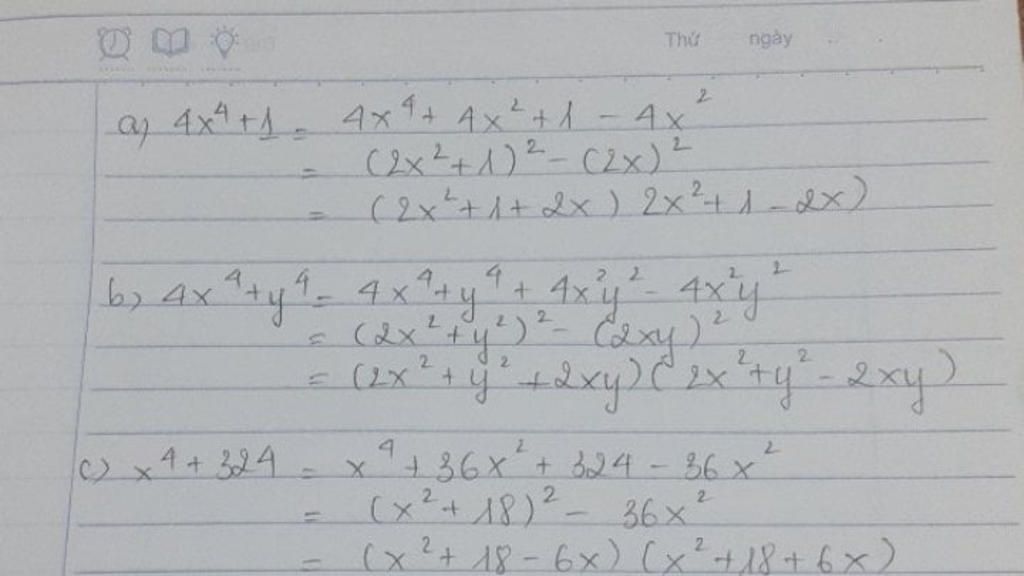 Thứ ngày
a) 4x⁴ + 1 = 4x⁴ + 4x² + 1 - 4x²
= (2x² + 1)² - (2x)²
= (2x² + 1 + 2x) 2x² + 1 - 2x)
b) 4x⁴ + y⁴ = 4x⁴ + y⁴ + 4x²y² - 4x²y²
= (2x² + y²)² - (2xy)²
= (2x² + y² + 2xy) (2x² + y² - 2xy)
c) x⁴ + 324 = x⁴ + 36x² + 324 - 36x²
= (x² + 18)² - 36x²
= (x² + 18 - 6x) (x² + 18 + 6x)